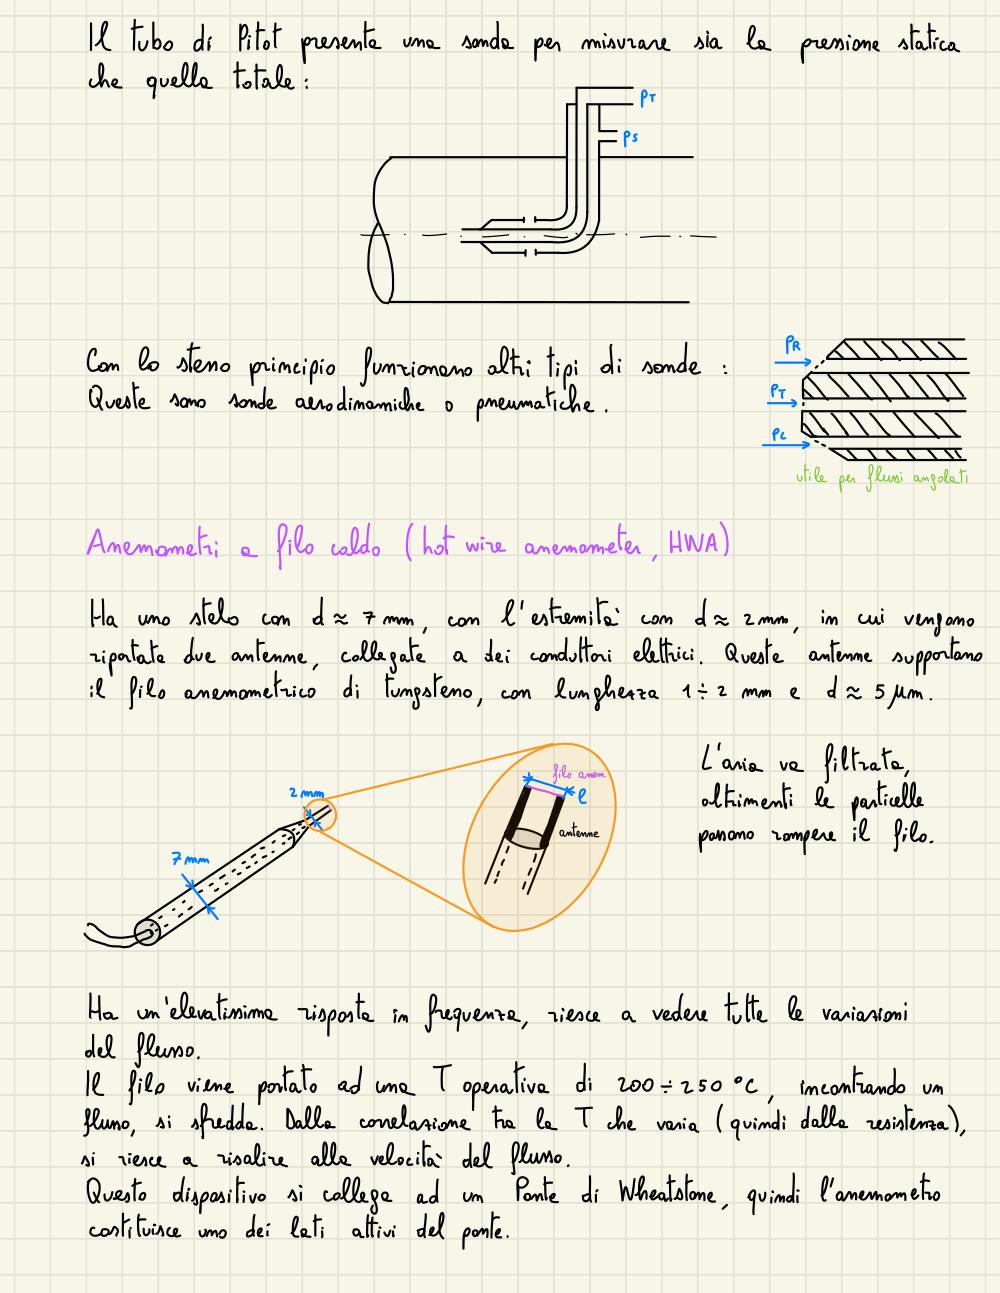 Il tubo di Pitot presenta una sonda per misurare sia la pressione statica
che quella totale:
PT
PS
Con lo stesso principio funzionano altri tipi di sonde :
Queste sono sonde aerodinamiche o pneumatiche.
PR
PT
PL
utile per flussi angolati
Anemometri a filo caldo (hot wire anemometer, HWA)
Ha uno stelo con d ≈ 7 mm, con l'estremità con d ≈ 2 mm, in cui vengono
riportate due antenne, collegate a dei conduttori elettrici. Queste antenne supportano
il filo anemometrico di tungsteno, con lunghezza 1 ÷ 2 mm e d ≈ 5 μm.
filo anem.
l
antenne
2 mm
7 mm
L'aria va filtrata,
altrimenti le particelle
possono rompere il filo.
Ha un'elevatissima risposta in frequenza, riesce a vedere tutte le variazioni
del flusso.
Il filo viene portato ad una T operativa di 200 ÷ 250 °C, incontrando un
flusso, si sfredda. Dalla correlazione tra la T che varia (quindi dalla resistenza),
si riesce a risalire alla velocità del flusso.
Questo dispositivo si collega ad un Ponte di Wheatstone, quindi l'anemometro
costituisce uno dei lati attivi del ponte.